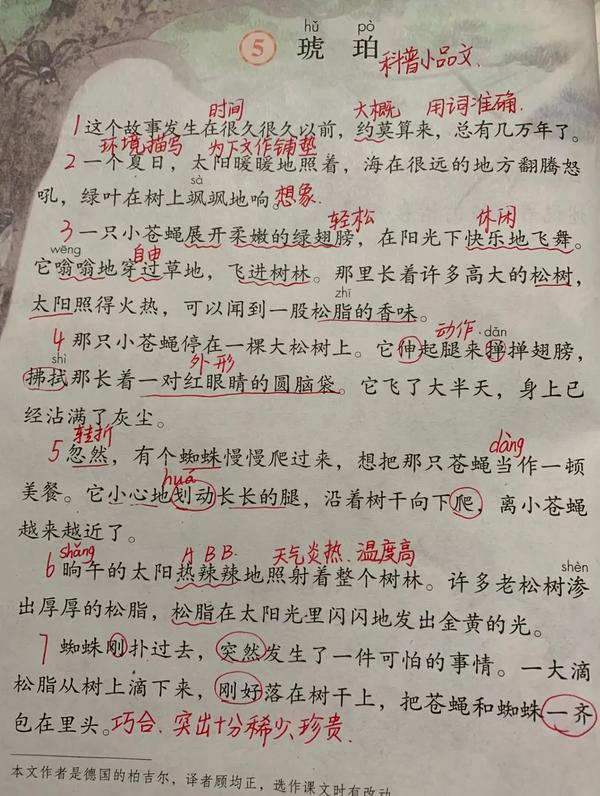 hǔ pò
5 琥珀 科普小品文.
时间 大概 用词准确.
1 这个故事发生在很久很久以前，约莫算来，总有几万年了。
环境描写 为下文作铺垫
2 一个夏日，太阳暖暖地照着，海在很远的地方翻腾怒
sà
吼，绿叶在树上飒飒地响。想象.
轻松 休闲
3 一只小苍蝇展开柔嫩的绿翅膀，在阳光下快乐地飞舞。
wēng 自由
它嗡嗡地穿过草地，飞进树林。那里长着许多高大的松树，
zhī
太阳照得火热，可以闻到一股松脂的香味。
动作. dǎn
4 那只小苍蝇停在一棵大松树上。它伸起腿来掸掸翅膀，
shì 外形
拂拭那长着一对红眼睛的圆脑袋。它飞了大半天，身上已
经沾满了灰尘。
转折 dàng
5 忽然，有个蜘蛛慢慢爬过来，想把那只苍蝇当作一顿
huá
美餐。它小心地划动长长的腿，沿着树干向下爬，离小苍蝇
越来越近了。
shǎng A B B. 天气炎热 温度高
6 晌午的太阳热辣辣地照射着整个树林。许多老松树渗
shèn
出厚厚的松脂，松脂在太阳光里闪闪地发出金黄的光。
7 蜘蛛刚扑过去，突然发生了一件可怕的事情。一大滴
松脂从树上滴下来，刚好落在树干上，把苍蝇和蜘蛛一齐
包在里头。巧合. 突出十分稀少、珍贵.
本文作者是德国的柏吉尔，译者顾均正，选作课文时有改动。